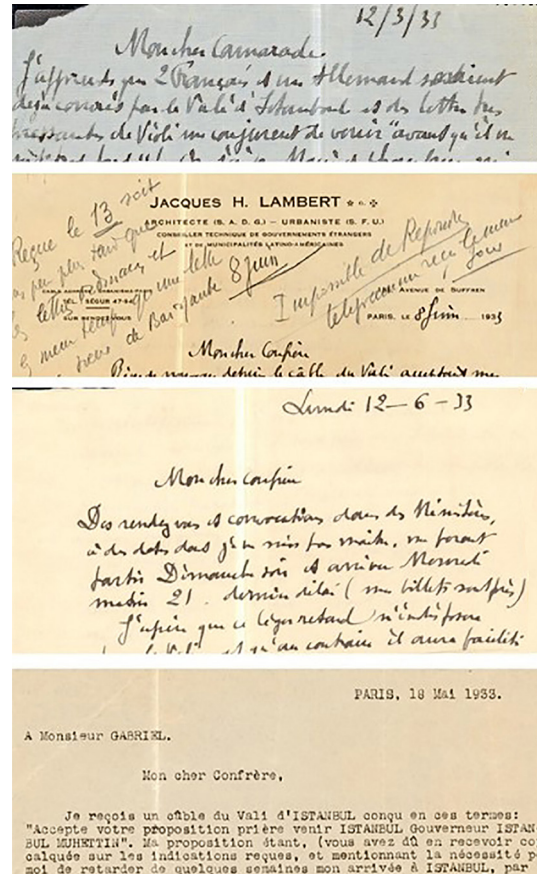 12/3/33
Mon cher Camarade
J'apprends que 2 Français et un Allemand seraient
déjà convoqués par le Vali d'Istanboul et des lettres très
pressantes de Violi me conjurent de venir "avant qu'il ne
JACQUES H. LAMBERT
ARCHITECTE (S. A. D. G.) – URBANISTE (S. F. U.)
CONSEILLER TECHNIQUE DE GOUVERNEMENTS ÉTRANGERS
ET DE MUNICIPALITÉS LATINO-AMÉRICAINES
Reçue le 13 soit
un peu plus tard que
lettre
et
le même temps qu'une lettre
de
8 juin
Impossible de Répondre
télégramme reçu le même
jour
TÉL. SÉGUR 47-
SUR RENDEZ-VOUS
AVENUE DE SUFFREN
PARIS, LE 8 Juin 1933
Mon cher Confrère
Rien de nouveau depuis le câble du Vali
Lundi 12 – 6 – 33
Mon cher confrère
Des rendez vous et convocations dans des Ministères,
à des dates dont je ne suis pas maître, me feront
partir Dimanche soir et arriver Mercredi
matin 21. dernier délai (mes billets sont pris)
J'espère que ce léger retard n'indisposera
le Vali et qu'au contraire il aura facilité
PARIS, 18 Mai 1933.
A Monsieur GABRIEL.
Mon cher Confrère,
Je reçois un câble du Vali d'ISTANBUL conçu en ces termes:
"Accepte votre proposition prière venir ISTANBUL Gouverneur ISTAN
BUL MUHETTIN". Ma proposition étant, (vous avez dû en recevoir co
calquée sur les indications reçues, et mentionnant la nécessité p
moi de retarder de quelques semaines mon arrivée à ISTANBUL, par